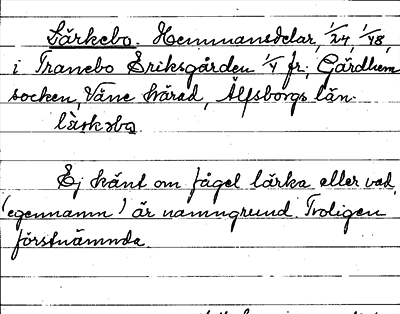 Lärkebo. Hemmansdelar, 1/24, 1/48,
i Tranebo Eriksgården 1/4 fr, Gärdhem
socken, Väne härad, Älfsborgs län.
lärkəbo
Ej känt om fågel lärka eller vad
(egennamn) är namngrund. Troligen
förstnämnda